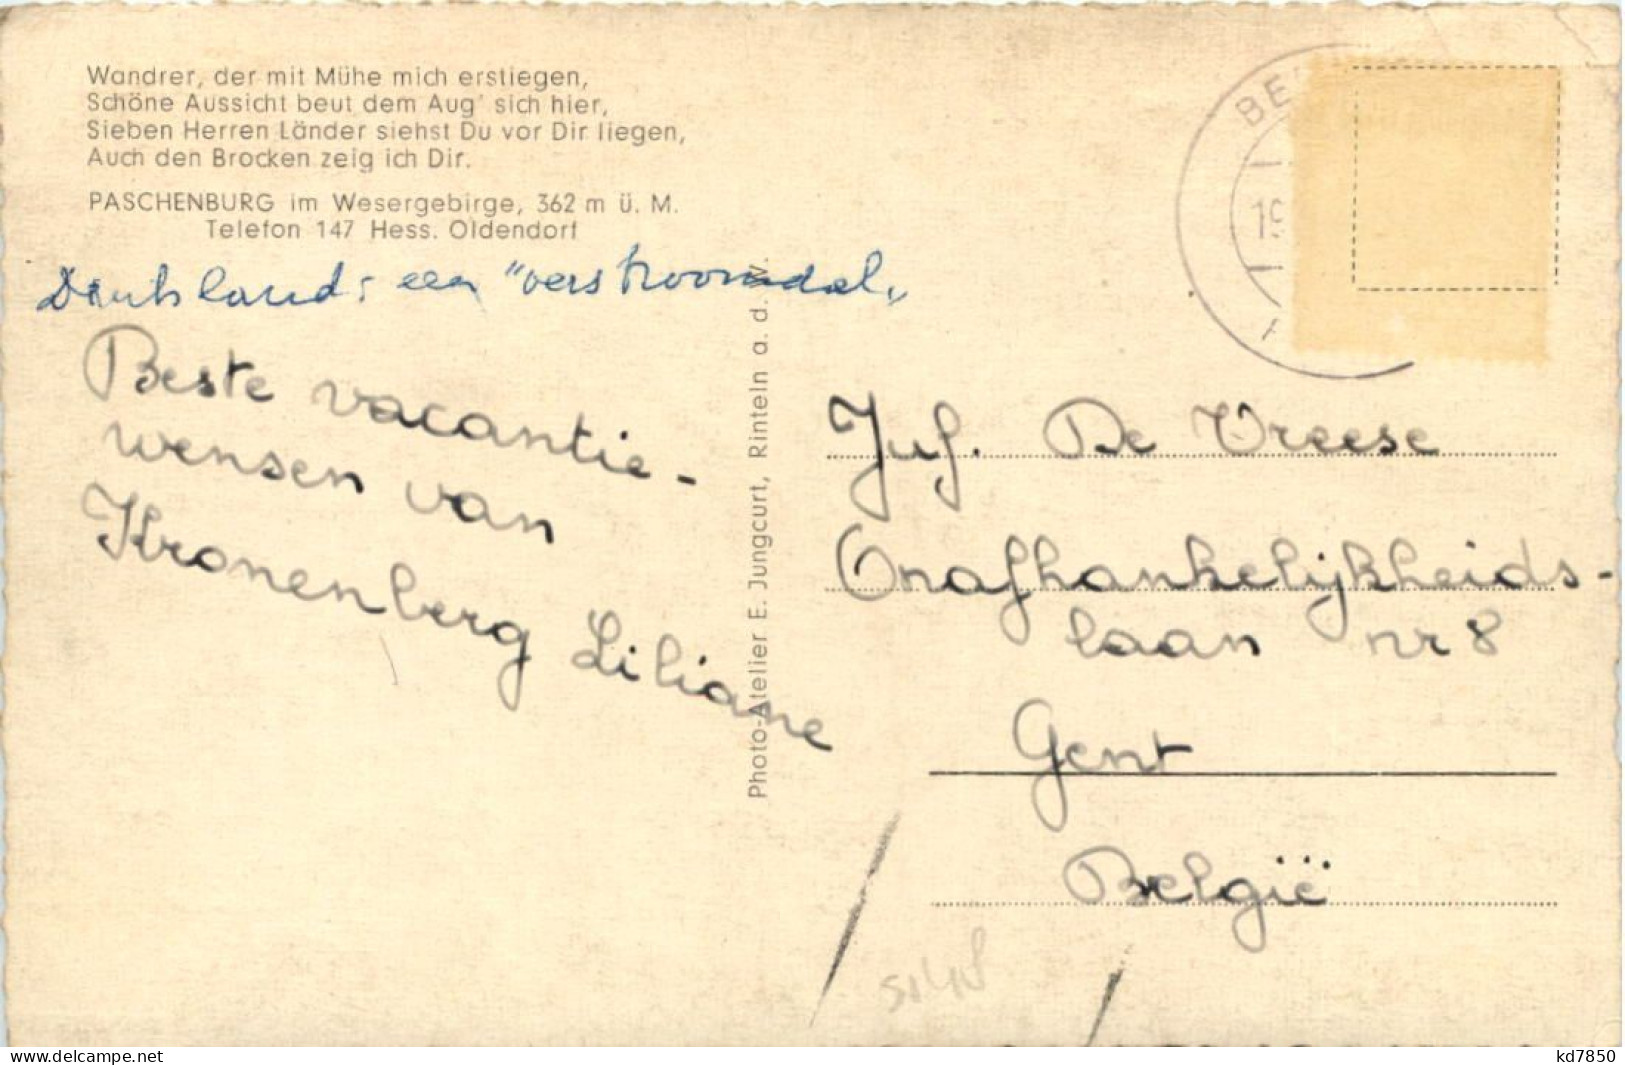 Wandrer, der mit Mühe mich erstiegen,
Schöne Aussicht beut dem Aug' sich hier,
Sieben Herren Länder siehst Du vor Dir liegen,
Auch den Brocken zeig ich Dir.
PASCHENBURG im Wesergebirge, 362 m ü. M.
Telefon 147 Hess. Oldendorf
een
Beste vacantie-
wensen van
Kronenberg Liliane
Photo-Atelier E. Jungcurt, Rinteln a. d. W.
BE
19
Juf. De Vreese
Onafhankelijkheids-
laan nr 8
Gent
België
www.delcampe.net
kd7850